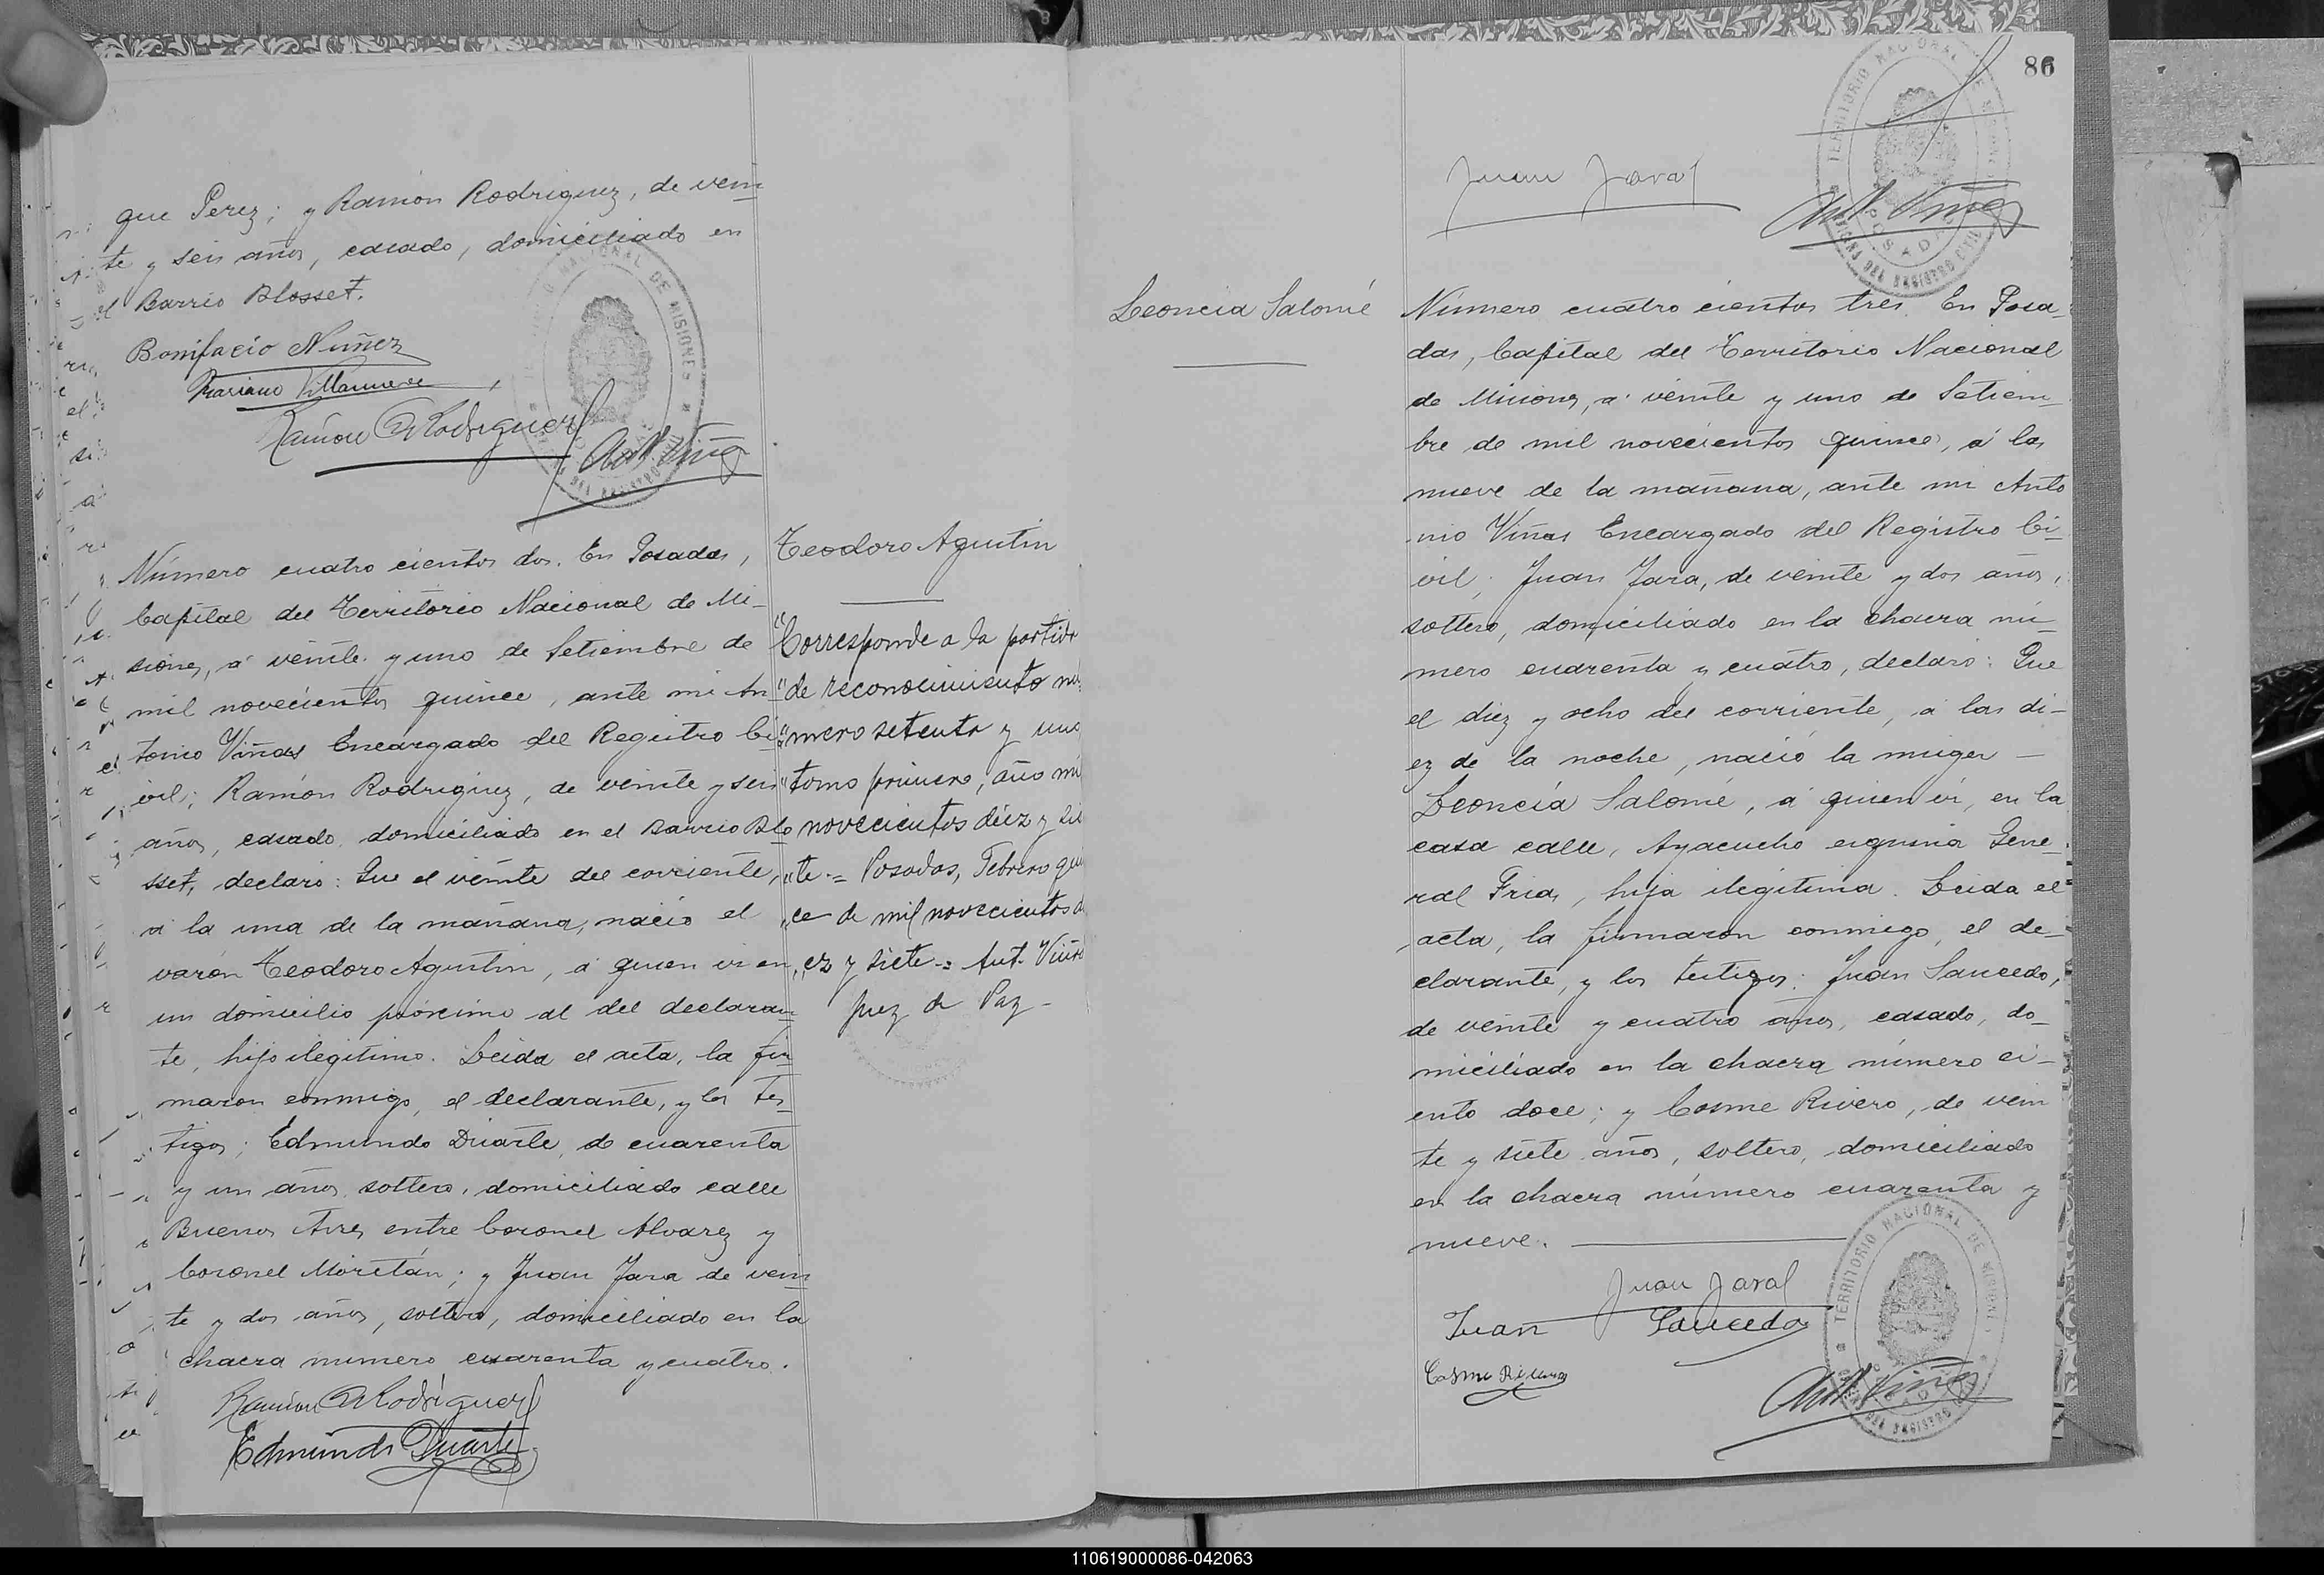 que Perez; y Ramón Rodriguez, de vein
te y seis años, casado, domiciliado en
el Barrio Blosset.
Bonifacio Nuñez
Mariano Villanueva
Ramón Rodriguez
Ant. Viñas
Número cuatro cientos dos. En Posadas,
Capital del Territorio Nacional de Mi-
siones, á veinte y uno de Setiembre de
mil novecientos quince, ante mi An
tonio Viñas Encargado del Registro Ci
vil; Ramón Rodriguez, de veinte y seis
años, casado, domiciliado en el Barrio Blo
sset, declaró: Que el veinte del corriente,
á la una de la mañana, nació el
varón Teodoro Agustin, á quien vi en
un domicilio próximo al del declaran
te, hijo ilegitimo. Leida el acta, la fir
maron conmigo, el declarante, y los tes
tigos; Edmundo Duarte, de cuarenta
y un años, soltero, domiciliado calle
Buenos Aires entre Coronel Alvarez y
Coronel Moritán; y Juan Jara de vein
te y dos años, soltero, domiciliado en la
chacra numero cuarenta y cuatro.
Ramón Rodriguez
Edmundo Duarte
Teodoro Agustin
"Corresponde a la partida
"de reconocimiento nu
"mero setenta y uno
"tomo primero, año mil
novecientos diez y sie
"te.= Posadas, Febrero quin
"ce de mil novecientos di
"ez y siete.= Ant. Viñas
Juez de Paz-
86
TERRITORIO NACIONAL DE MISIONES
Juan Jara
Ant. Viñas
Leoncia Salomé
Número cuatro cientos tres. En Posa-
das, Capital del Territorio Nacional
de Misiones, á veinte y uno de Setiem-
bre de mil novecientos quince, á las
nueve de la mañana, ante mi Anto
nio Viñas Encargado del Registro Ci-
vil; Juan Jara, de veinte y dos años,
soltero, domiciliado en la chacra nú-
mero cuarenta y cuatro, declaró: Que
el diez y ocho del corriente, á las di-
ez de la noche, nació la muger -
Leoncia Salomé, á quien vi, en la
casa calle, Ayacucho esquina Gene-
ral Frias, hija ilegitima. Leida el
acta, la firmaron conmigo, el de-
clarante, y los testigos: Juan Saucedo,
de veinte y cuatro años, casado, do-
miciliado en la chacra número ci-
ento doce; y Cosme Rivero, de vein
te y siete años, soltero, domiciliado
en la chacra número cuarenta y
nueve.
Juan Jara
Juan Saucedo
Cosme Rivero
Ant. Viñas
TERRITORIO NACIONAL DE MISIONES
110619000086-042063